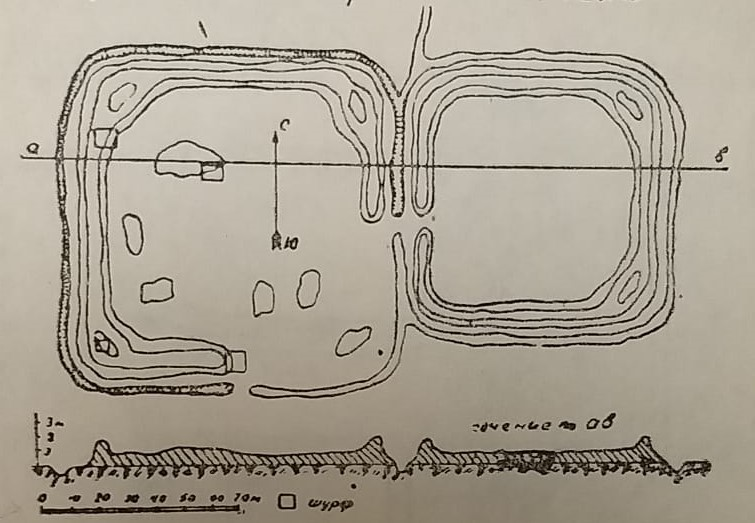 С
а
в
Ю
3м
2
1
сечение по ав
0 10 20 30 40 50 60 70м
шурф